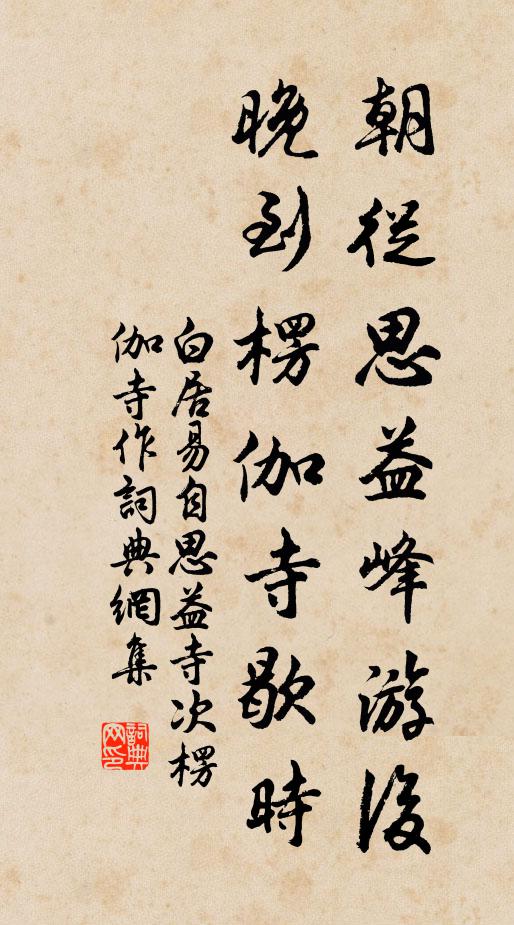 朝從思益峰游後
晚到楞伽寺歇時
白居易自思益寺次楞
伽寺作詞典網集
詞典
网印